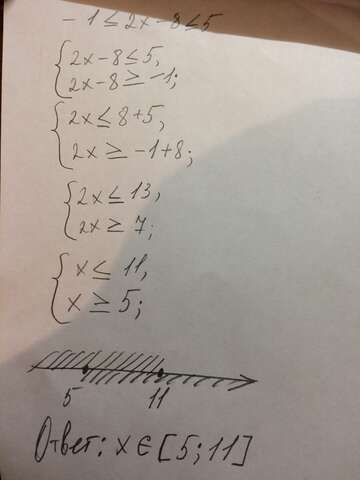 -1≤2x-8≤5
{2x-8≤5,
2x-8≥-1;
{2x≤8+5,
2x≥-1+8;
{2x≤13,
2x≥7;
{x≤11,
x≥5;
5 11
Ответ: x∈[5;11]